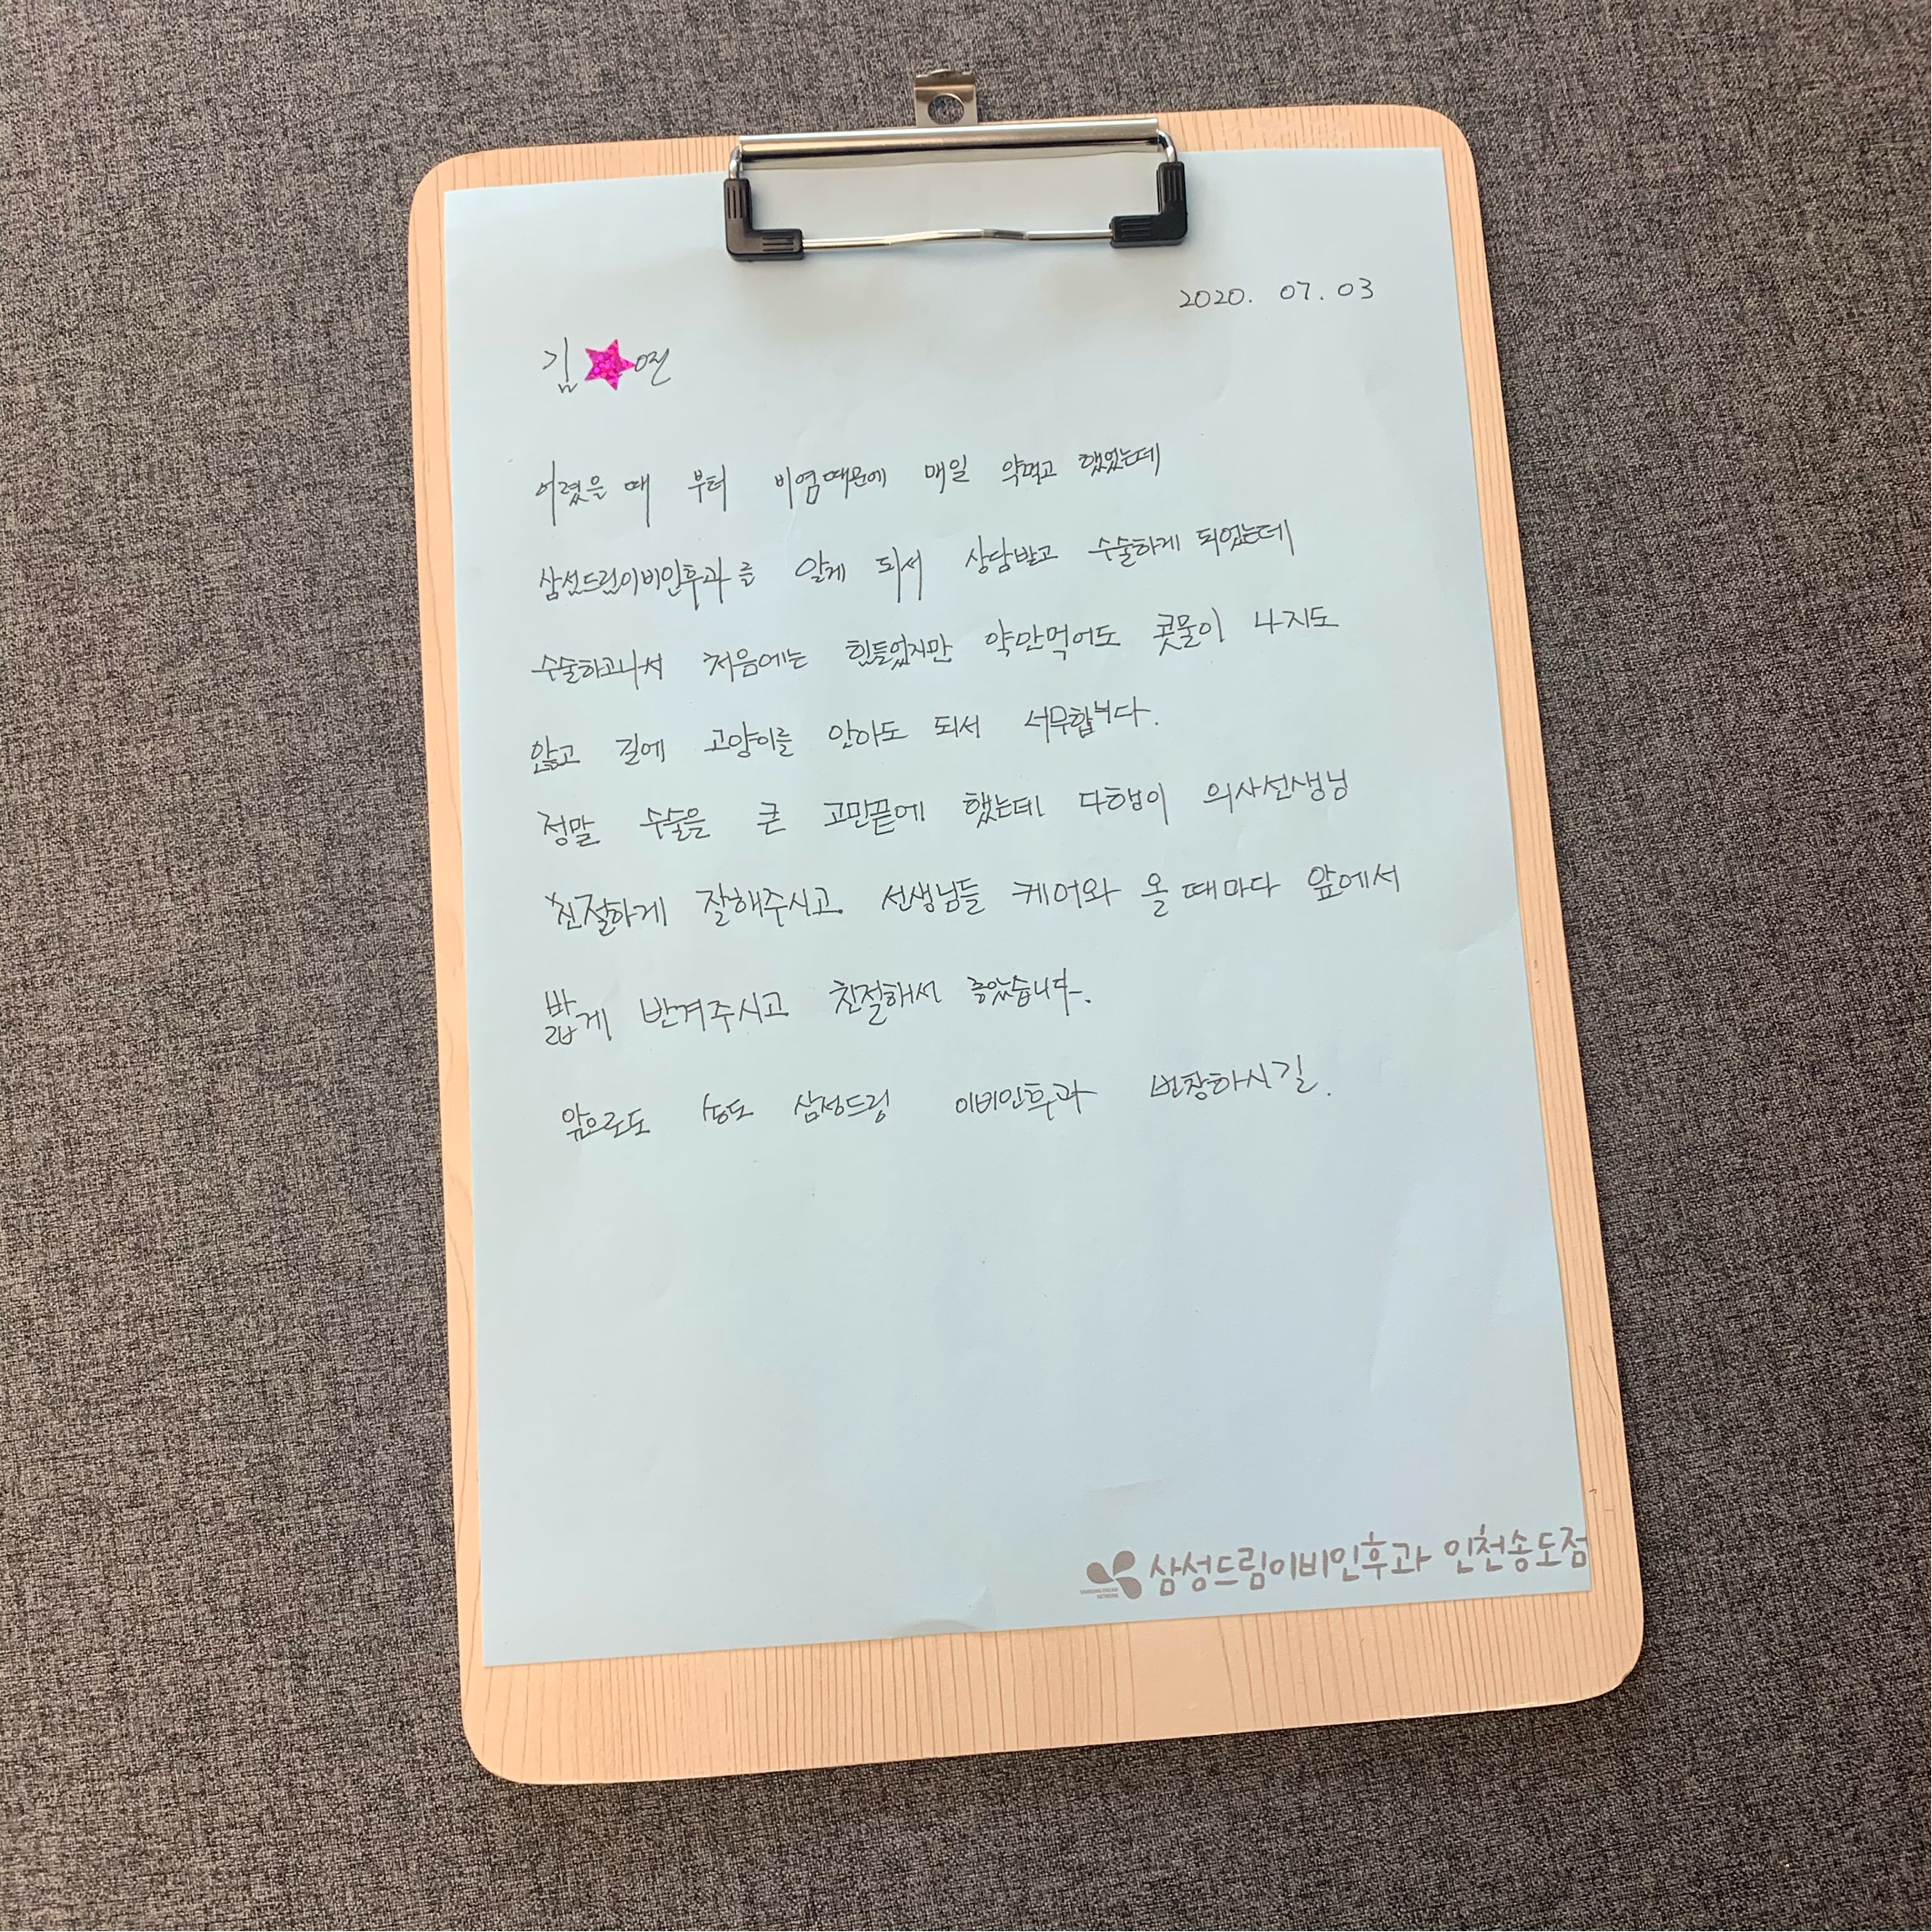 2020. 07. 03
김 연
어렸을 때 부터 비염때문에 매일 약먹고 했었는데
삼성드림이비인후과를 알게 되서 상담받고 수술하게 되었는데
수술하고나서 처음에는 힘들었지만 약안먹어도 콧물이 나지도
않고 길에 고양이를 안아도 되서 너무합니다.
정말 수술을 큰 고민끝에 했는데 다행이 의사선생님
친절하게 잘해주시고 선생님들 케어와 올 때마다 앞에서
밝게 반겨주시고 친절해서 좋았습니다.
앞으로도 송도 삼성드림 이비인후과 번창하시길.
삼성드림이비인후과 인천송도점
SAMSUNG DREAM
NETWORK